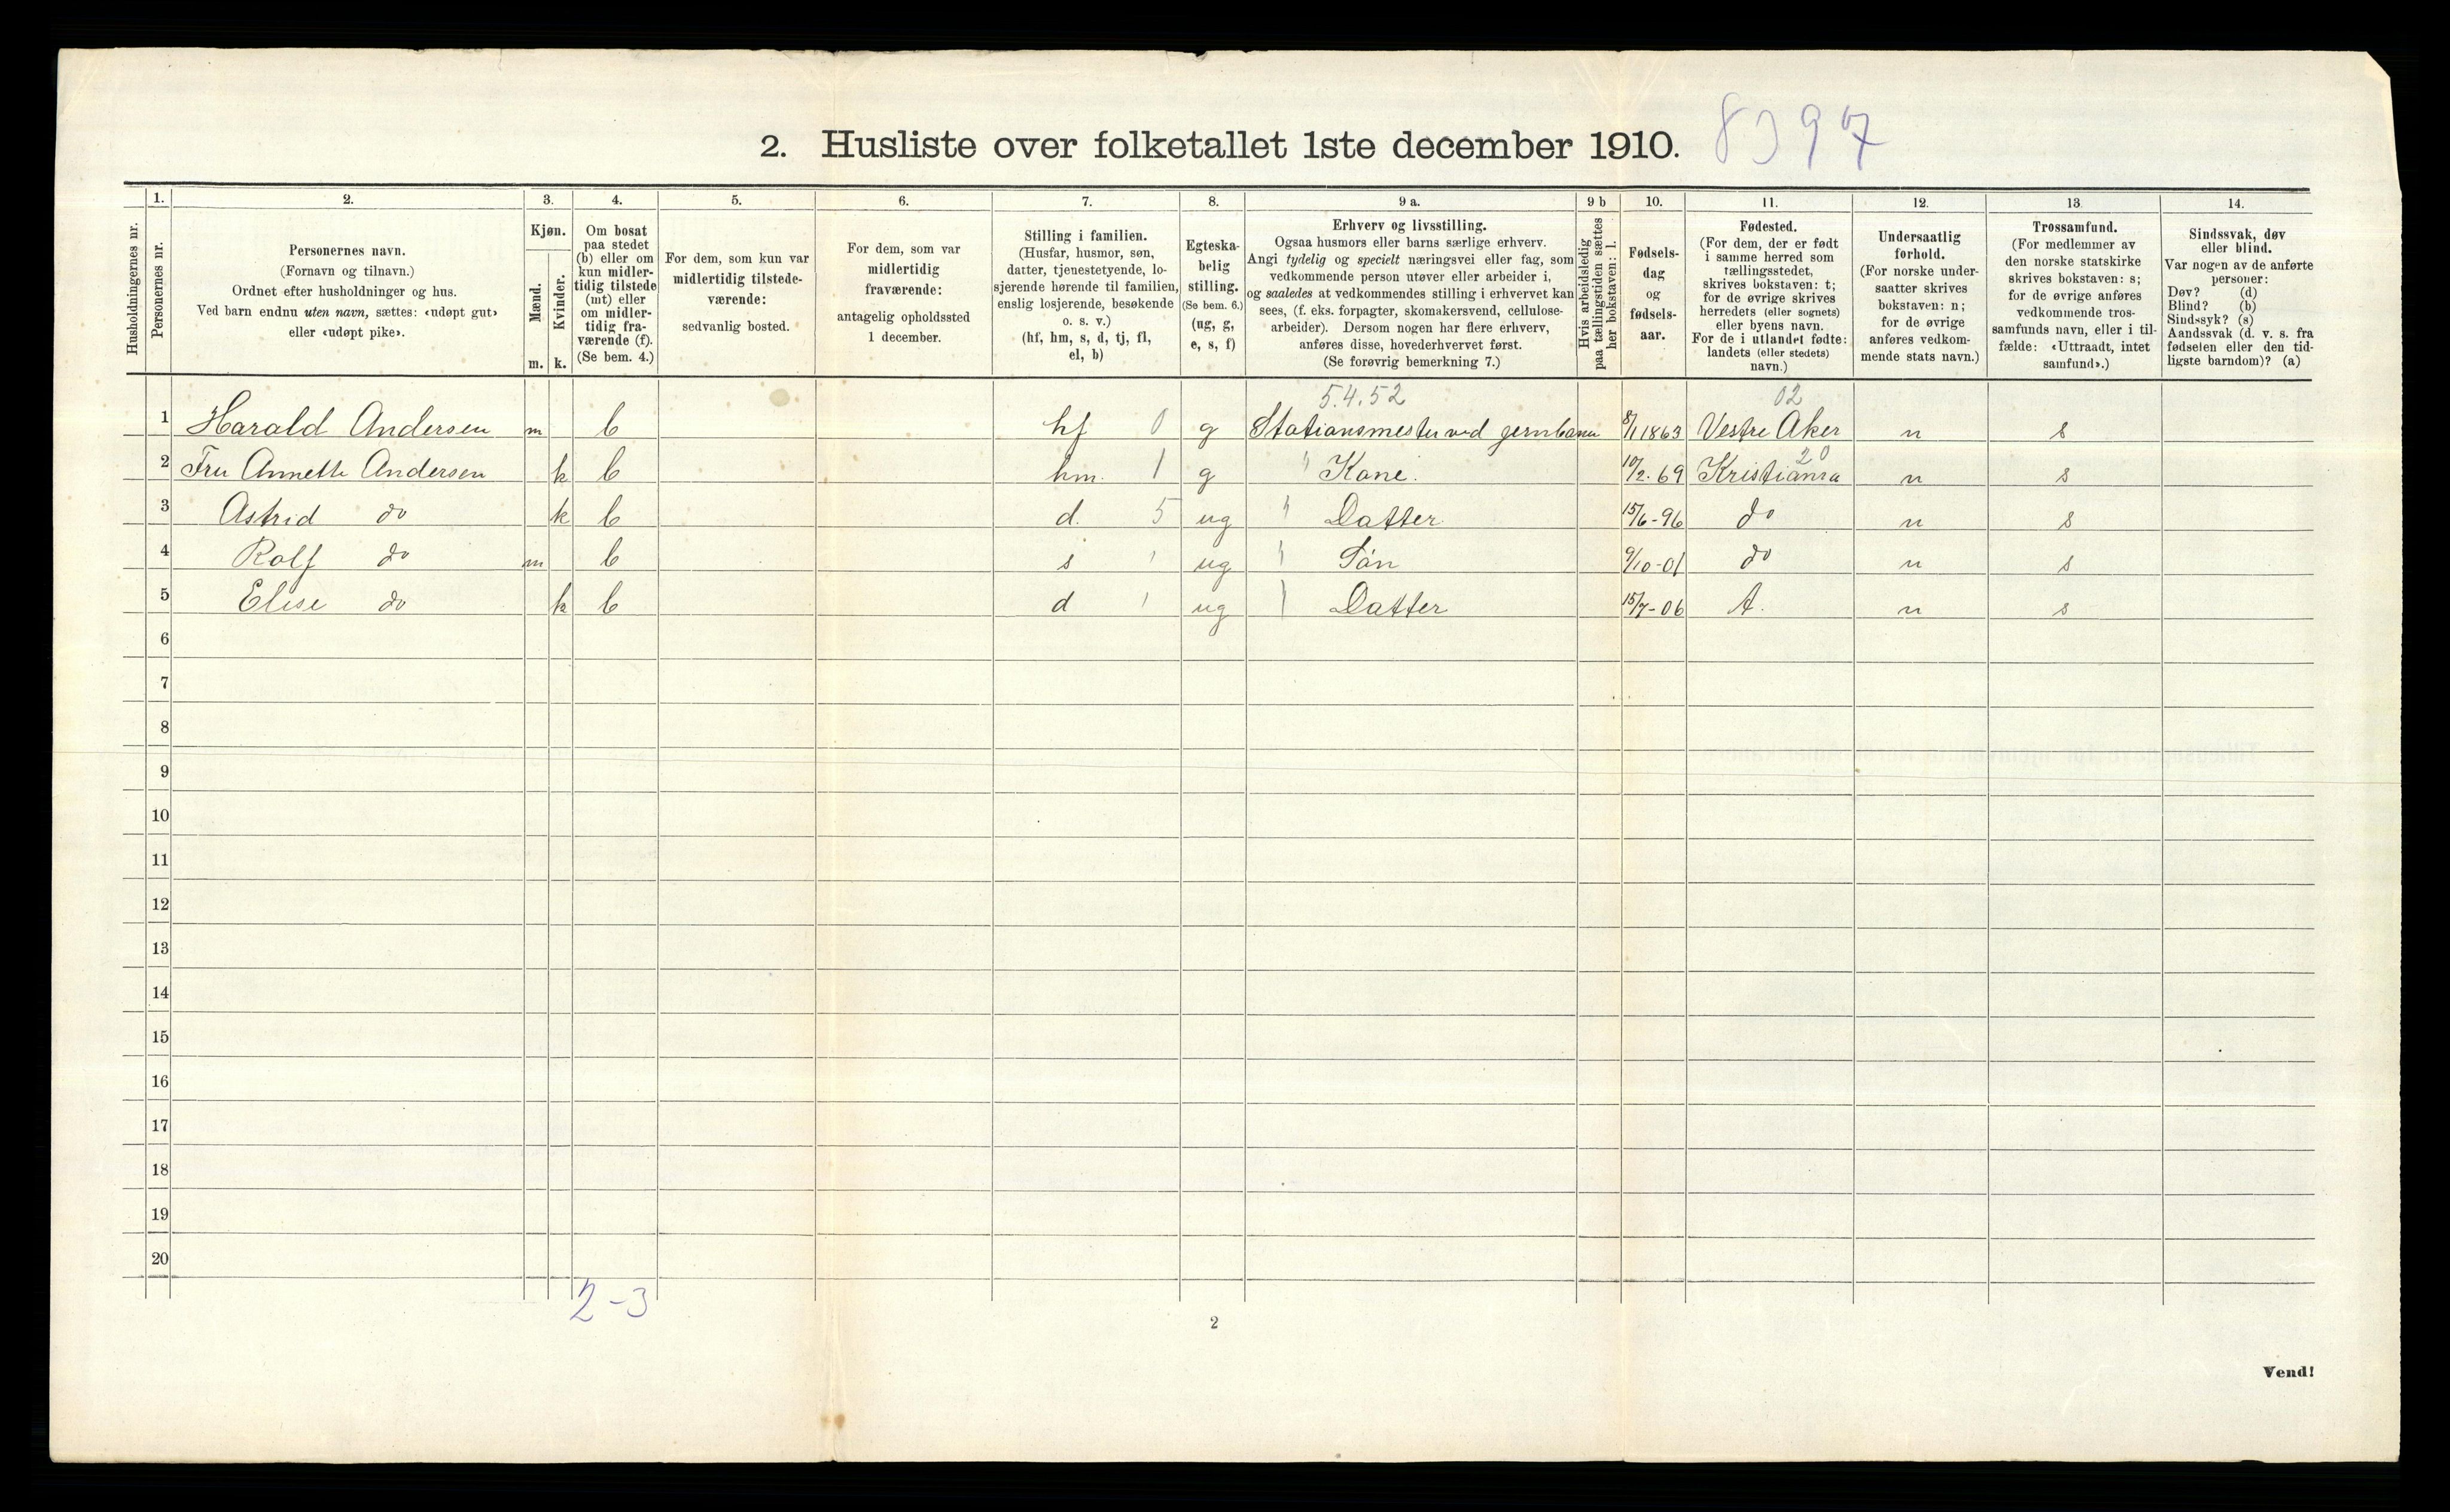 2. Husliste over folketallet 1ste december 1910.
Husholdningernes nr.
1. Personernes nr.
2. Personernes navn.
(Fornavn og tilnavn.)
Ordnet efter husholdninger og hus.
Ved barn endnu uten navn, sættes: «udøpt gut»
eller «udøpt pike».
3. Kjøn.
Mænd. m.
Kvinder. k.
4. Om bosat
paa stedet
(b) eller om
kun midler-
tidig tilstede
(mt) eller
om midler-
tidig fra-
værende (f).
(Se bem. 4.)
5. For dem, som kun var
midlertidig tilstede-
værende:
sedvanlig bosted.
6. For dem, som var
midlertidig
fraværende:
antagelig opholdssted
1 december.
7. Stilling i familien.
(Husfar, husmor, søn,
datter, tjenestetyende, lo-
sjerende hørende til familien,
enslig losjerende, besøkende
o. s. v.)
(hf, hm, s, d, tj, fl,
el, b)
8. Egteska-
belig
stilling.
(Se bem. 6.)
(ug, g,
e, s, f)
9 a. Erhverv og livsstilling.
Ogsaa husmors eller barns særlige erhverv.
Angi tydelig og specielt næringsvei eller fag, som
vedkommende person utøver eller arbeider i,
og saaledes at vedkommendes stilling i erhvervet kan
sees, (f. eks. forpagter, skomakersvend, cellulose-
arbeider). Dersom nogen har flere erhverv,
anføres disse, hovederhvervet først.
(Se forøvrig bemerkning 7.)
9 b Hvis arbeidsledig
paa tællingstiden sættes
her bokstaven: l.
10. Fødsels-
dag
og
fødsels-
aar.
11. Fødested.
(For dem, der er født
i samme herred som
tællingsstedet,
skrives bokstaven: t;
for de øvrige skrives
herredets (eller sognets)
eller byens navn.
For de i utlandet fødte:
landets (eller stedets)
navn.)
12. Undersaatlig
forhold.
(For norske under-
saatter skrives
bokstaven: n;
for de øvrige
anføres vedkom-
mende stats navn.)
13. Trossamfund.
(For medlemmer av
den norske statskirke
skrives bokstaven: s;
for de øvrige anføres
vedkommende tros-
samfunds navn, eller i til-
fælde: «Uttraadt, intet
samfund».)
14. Sindssvak, døv
eller blind.
Var nogen av de anførte
personer:
Døv? (d)
Blind? (b)
Sindssyk? (s)
Aandssvak (d. v. s. fra
fødselen eller den tid-
ligste barndom)? (a)
5.4.52 02
1 Harald Andersen m b hf 0 g Stationsmester ved jernbanen 8/11 1863 Vestre Aker n s
20
2 Fru Annette Andersen k b hm. 1 g " Kone. 10/2.69 Kristiania n s
3 Astrid do k b d. 5 ug " Datter 15/6-96 do n s
4 Rolf do m b s ug " Søn 9/10-01 do n s
5 Elise do k b d ug Datter 15/7-06 t. n s
6
7
8
9
10
11
12
13
14
15
16
17
18
19
20
2-3
2
Vend!